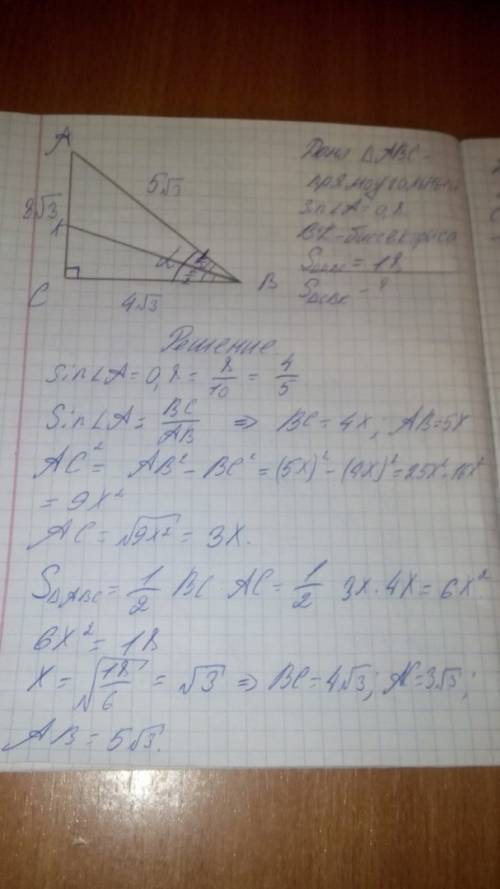 A
5√3
3√3
K
C
4√3
B
Дана ΔABC -
прямоугольный
Sin∠A = 0,8
BK - биссектриса
SΔABC = 18
SΔCBK - ?
Решение
Sin∠A = 0,8 = 8/10 = 4/5
Sin∠A = BC/AB ⇒ BC = 4x; AB = 5x
AC² = AB² - BC² = (5x)² - (4x)² = 25x² - 16x²
= 9x²
AC = √9x² = 3x.
SΔABC = 1/2 BC · AC = 1/2 3x · 4x = 6x²
6x² = 18
x = √18/6 = √3 ⇒ BC = 4√3; AC = 3√3;
AB = 5√3.